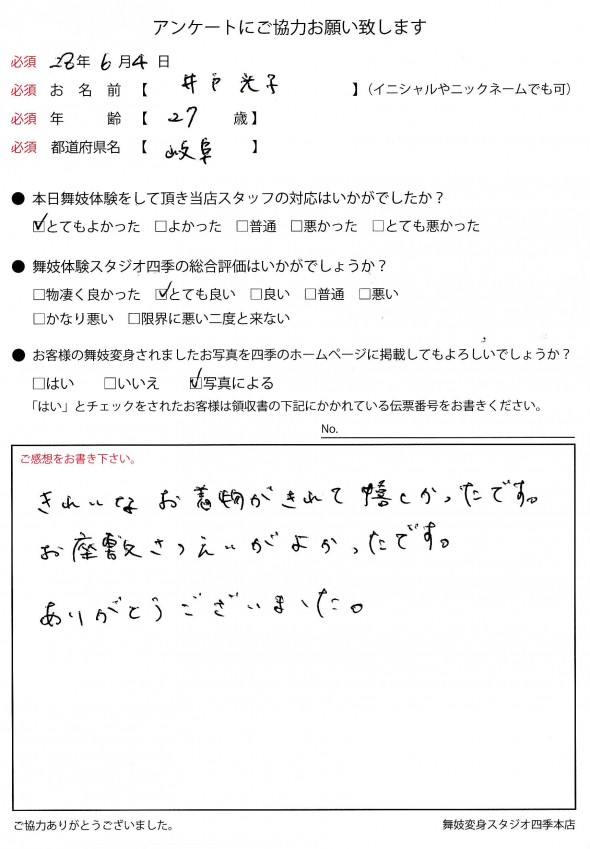 アンケートにご協力お願い致します
必須 28年 6月 4日
必須 お名前【 井戸 光子 】（イニシャルやニックネームでも可）
必須 年齢【 27 歳】
必須 都道府県名【 岐阜 】
● 本日舞妓体験をして頂き当店スタッフの対応はいかがでしたか？
☑とてもよかった □よかった □普通 □悪かった □とても悪かった
● 舞妓体験スタジオ四季の総合評価はいかがでしょうか？
□物凄く良かった ☑とても良い □良い □普通 □悪い
□かなり悪い □限界に悪い二度と来ない
● お客様の舞妓変身されましたお写真を四季のホームページに掲載してもよろしいでしょうか？
□はい □いいえ ☑写真による
「はい」とチェックをされたお客様は領収書の下記にかかれている伝票番号をお書きください。
No.
ご感想をお書き下さい。
きれいなお着物がきれて嬉しかったです。
お座敷さつえいがよかったです。
ありがとうございました。
ご協力ありがとうございました。
舞妓変身スタジオ四季本店